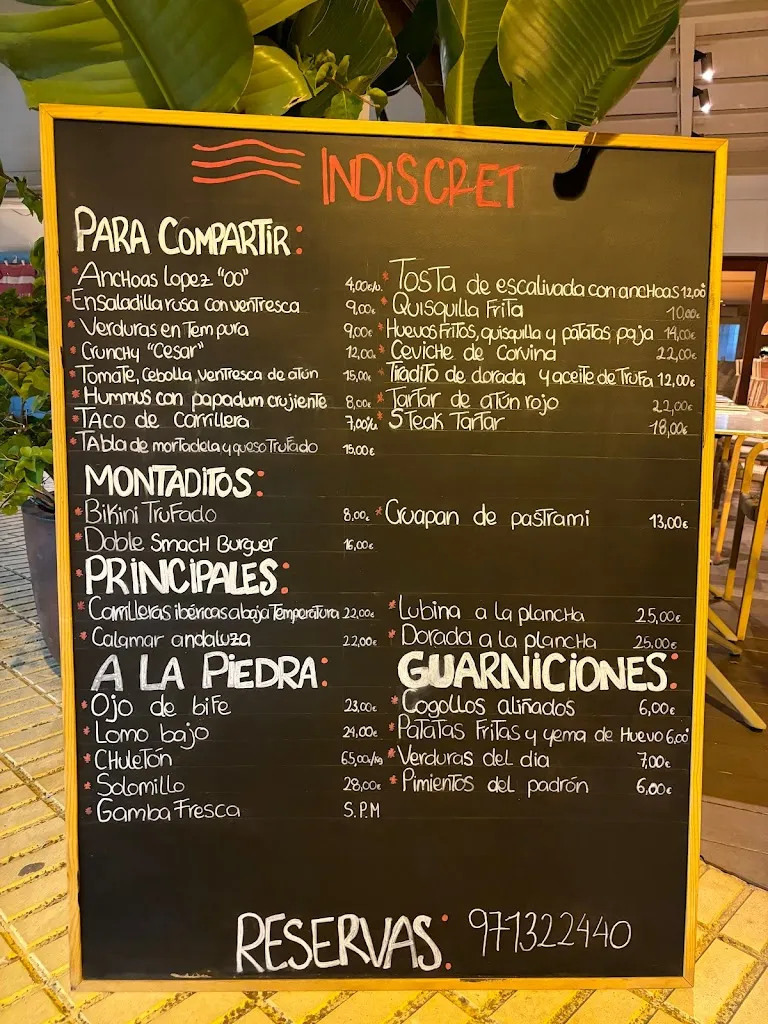 INDISCRET
PARA COMPARTIR:
* Anchoas Lopez "00" 4,00€/u.
* Ensaladilla rusa con ventresca 9,00€
* Verduras en Tempura 9,00€
* Crunchy "Cesar" 12,00€
* Tomate, Cebolla, ventresca de atún 15,00€
* Hummus con papadum crujiente 8,00€
* Taco de Carrillera 7,00€/u
* Tabla de mortadela y queso Trufado 15,00€
* Tosta de escalivada con anchoas 12,00€
* Quisquilla Frita 10,00€
* Huevos Fritos, quisquilla y patatas paja 14,00€
* Ceviche de Corvina 22,00€
* Tiradito de dorada y aceite de Trufa 12,00€
* Tartar de atún rojo 22,00€
* Steak Tartar 18,00€
MONTADITOS:
* Bikini Trufado 8,00€
* Doble Smach Burguer 16,00€
* Gruapan de pastrami 13,00€
PRINCIPALES:
* Carrilleras ibéricas a baja Temperatura 22,00€
* Calamar andaluza 22,00€
* Lubina a la plancha 25,00€
* Dorada a la plancha 25,00€
A LA PIEDRA:
* Ojo de bife 23,00€
* Lomo bajo 24,00€
* Chuletón 65,00/kg
* Solomillo 28,00€
* Gamba Fresca S.P.M
GUARNICIONES:
* Cogollos aliñados 6,00€
* Patatas Fritas y yema de Huevo 6,00€
* Verduras del dia 7,00€
* Pimientos del padrón 6,00€
RESERVAS: 971322440